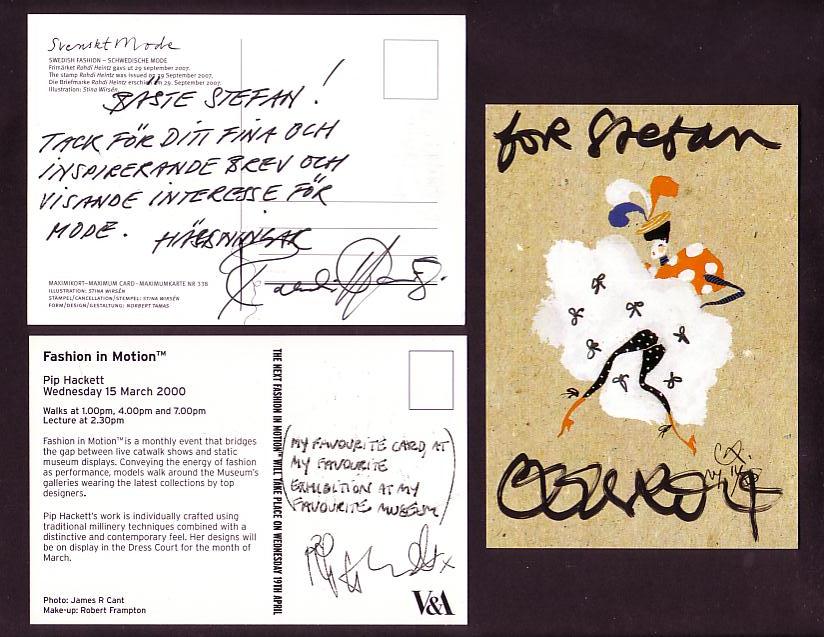 Svenskt Mode
SWEDISH FASHION – SCHWEDISCHE MODE
Frimärket Rohdi Heintz gavs ut 29 september 2007.
The stamp Rohdi Heintz was issued on 29 September 2007.
Die Briefmarke Rohdi Heintz erschien am 29. September 2007.
Illustration: Stina Wirsén
BÄSTE STEFAN!
TACK FÖR DITT FINA OCH
INSPIRERANDE BREV OCH
VISANDE INTERESSE FÖR
MODE. HÄLSNINGAR
MAXIMIKORT–MAXIMUM CARD–MAXIMUMKARTE NR 338
ILLUSTRATION: STINA WIRSÉN
STÄMPEL/CANCELLATION/STEMPEL: STINA WIRSÉN
FORM/DESIGN/GESTALTUNG: NORBERT TAMAS
for Stefan
Fashion in Motion™
Pip Hackett
Wednesday 15 March 2000
Walks at 1.00pm, 4.00pm and 7.00pm
Lecture at 2.30pm
Fashion in Motion™ is a monthly event that bridges
the gap between live catwalk shows and static
museum displays. Conveying the energy of fashion
as performance, models walk around the Museum's
galleries wearing the latest collections by top
designers.
Pip Hackett's work is individually crafted using
traditional millinery techniques combined with a
distinctive and contemporary feel. Her designs will
be on display in the Dress Court for the month of
March.
Photo: James R Cant
Make-up: Robert Frampton
THE NEXT FASHION IN MOTION™ WILL TAKE PLACE ON WEDNESDAY 19TH APRIL
(MY FAVOURITE CARD, AT
MY FAVOURITE
EXHIBITION AT MY
FAVOURITE MUSEUM)
Pip Hackett x
V&A